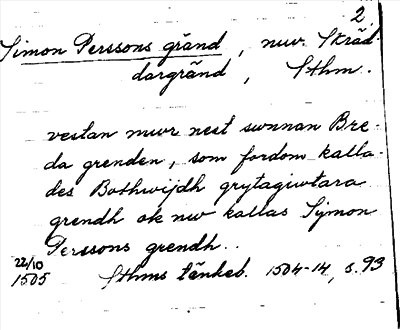 2
Simon Perssons gränd, nuv. Skräd-
dargränd, Sthm.
vestan mwr nest swnnan Bre-
da grenden, som fordom kalla-
des Bothwijdh grytagiwtara
grendh ok nw kallas Symon
Perssons grendh.
22/10
1505 Sthms tänkeb. 1504-14, s. 93